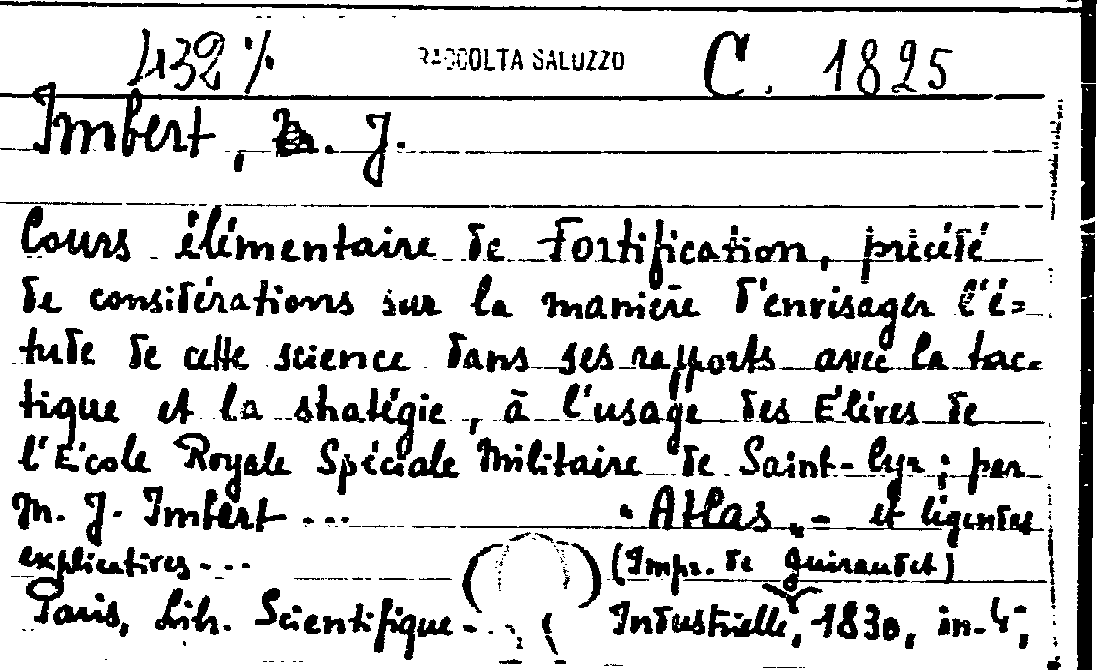 432 % RACCOLTA SALUZZO C. 1825
Imbert, J.
Cours élémentaire de Fortification, précédé
de considérations sur la manière d'envisager l'é=
tude de cette science dans ses rapports avec la tac-
tique et la stratégie, à l'usage des Élèves de
l'École Royale Spéciale Militaire de Saint-Cyr; par
M. J. Imbert ... Atlas - et légendes
explicatives... (Impr. de Guiraudet)
Paris, Lib. Scientifique-Industrielle, 1830, in-4°,